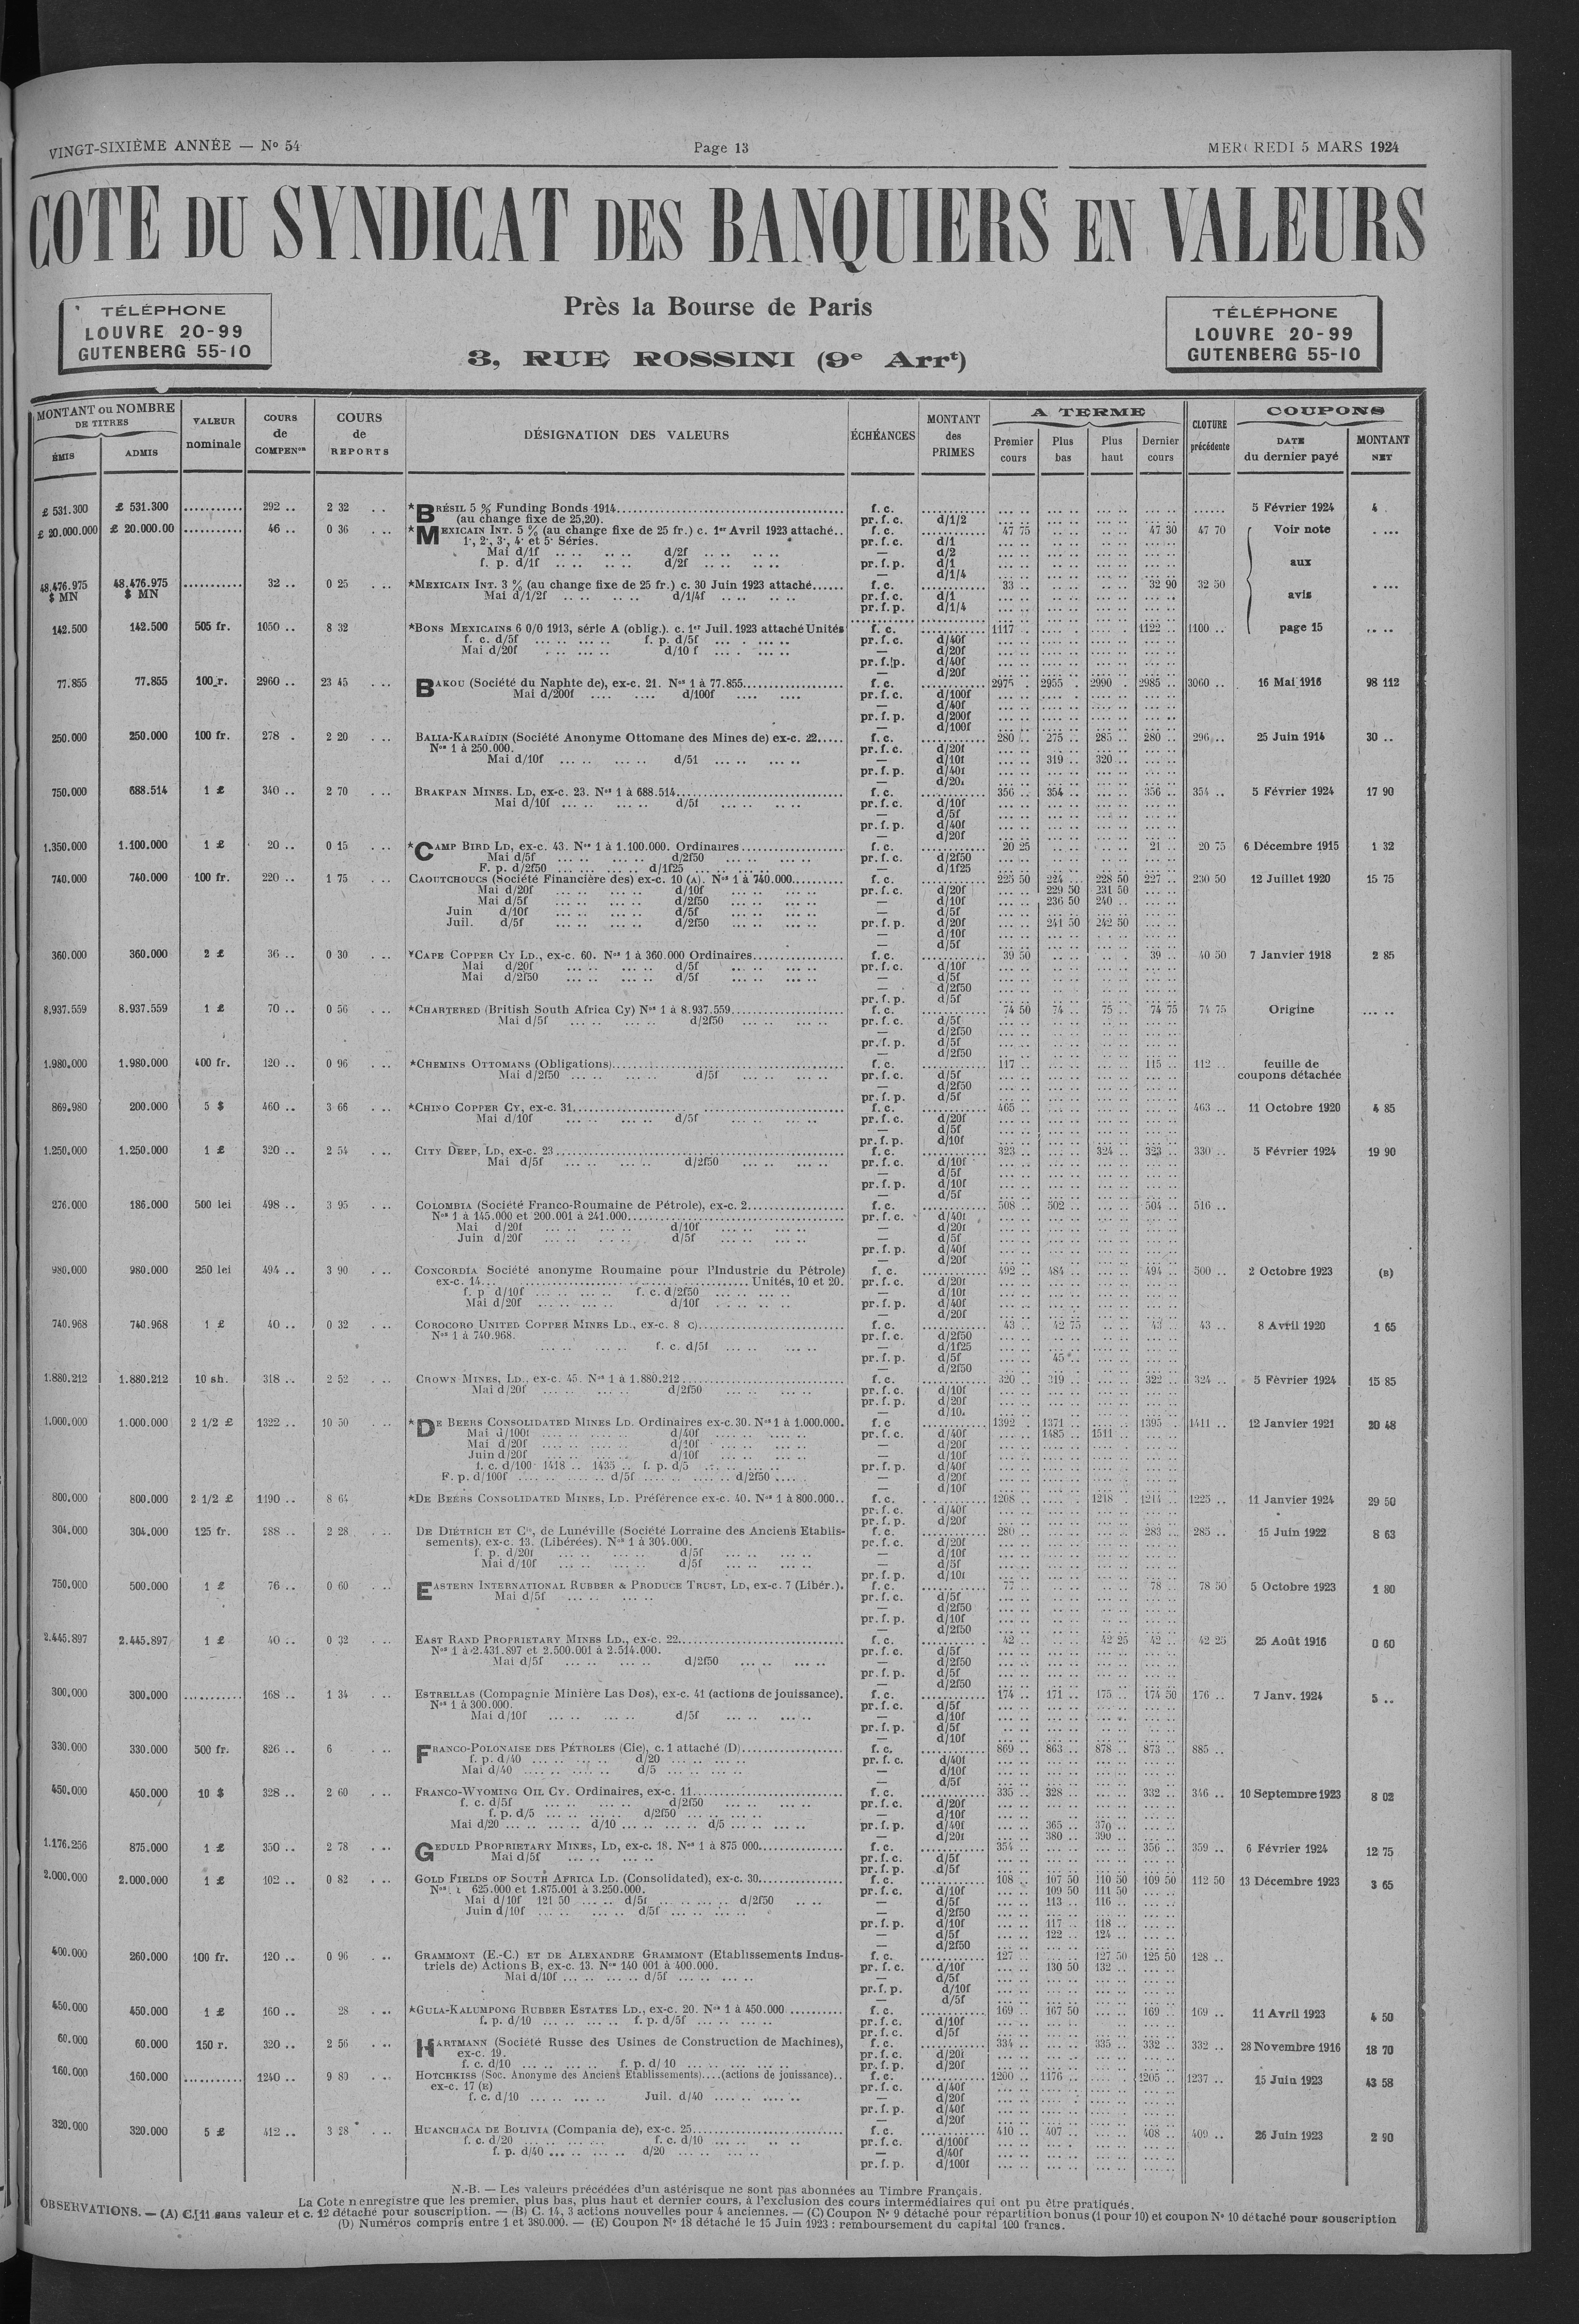 VINGT-SIXIÈME ANNÉE — No 54
Page 13
MERCREDI 5 MARS 1924
COTE DU SYNDICAT DES BANQUIERS EN VALEURS
TÉLÉPHONE
LOUVRE 20-99
GUTENBERG 55-10
Près la Bourse de Paris
3, RUE ROSSINI (9e Arrt)
TÉLÉPHONE
LOUVRE 20-99
GUTENBERG 55-10
MONTANT ou NOMBRE DE TITRES
ÉMIS ADMIS
VALEUR nominale
COURS de COMPENon
COURS de REPORTS
DÉSIGNATION DES VALEURS
ÉCHÉANCES
MONTANT des PRIMES
A TERME
Premier cours Plus bas Plus haut Dernier cours
CLOTURE précédente
COUPONS
DATE du dernier payé MONTANT NET
£ 531.300 £ 531.300 292 .. 2 32 *BRÉSIL 5 % Funding Bonds 1914 f. c. 5 Février 1924 4
(au change fixe de 25,20). pr. f. c. d/1/2
£ 20.000.000 £ 20.000.00 46 .. 0 36 *MEXICAIN INT. 5 % (au change fixe de 25 fr.) c. 1er Avril 1923 attaché.. f. c. 47 75 47 30 47 70 Voir note
1·, 2·, 3·, 4· et 5· Séries. pr. f. c. d/1
Mai d/1f d/2f — d/2
f. p. d/1f d/2f pr. f. p. d/1 aux
— d/1/4
48.476.975 $ MN 48.476.975 $ MN 32 .. 0 25 *MEXICAIN INT. 3 % (au change fixe de 25 fr.) c. 30 Juin 1923 attaché f. c. 33 .. 32 90 32 50 avis
Mai d/1/2f d/1/4f pr. f. c. d/1
pr. f. p. d/1/4
142.500 142.500 505 fr. 1050 .. 8 32 *BONS MEXICAINS 6 0/0 1913, série A (oblig.). c. 1er Juil. 1923 attaché Unités f. c. 1117 1122 .. 1100 .. page 15
f. c. d/5f f. p. d/5f pr. f. c. d/40f
Mai d/20f d/10 f — d/20f
pr. f. p. d/40f
— d/20f
77.855 77.855 100 r. 2960 .. 23 45 BAKOU (Société du Naphte de), ex-c. 21. Nos 1 à 77.855 f. c. 2975 2955 2990 2985 3060 .. 16 Mai 1916 98 112
Mai d/200f d/100f pr. f. c. d/100f
— d/40f
pr. f. p. d/200f
— d/100f
250.000 250.000 100 fr. 278 . 2 20 BALIA-KARAÏDIN (Société Anonyme Ottomane des Mines de) ex-c. 22 f. c. 280 275 285 280 296 .. 25 Juin 1914 30 ..
Nos 1 à 250.000. pr. f. c. d/20f
Mai d/10f d/51 — d/10f 319 320
pr. f. p. d/40f
— d/20f
750.000 688.514 1 £ 340 .. 2 70 BRAKPAN MINES. LD, ex-c. 23. Nos 1 à 688.514 f. c. 356 354 356 354 .. 5 Février 1924 17 90
Mai d/10f d/5f pr. f. c. d/10f
— d/5f
pr. f. p. d/40f
— d/20f
1.350.000 1.100.000 1 £ 20 .. 0 15 *CAMP BIRD LD, ex-c. 43. Nos 1 à 1.100.000. Ordinaires f. c. 20 25 21 .. 20 75 6 Décembre 1915 1 32
Mai d/5f d/2f50 pr. f. c. d/2f50
F. p. d/2f50 d/1f25 — d/1f25
740.000 740.000 100 fr. 220 .. 1 75 CAOUTCHOUCS (Société Financière des) ex-c. 10 (A). Nos 1 à 740.000 f. c. 225 50 224 228 50 227 230 50 12 Juillet 1920 15 75
Mai d/20f d/10f pr. f. c. d/20f 229 50 231 50
Mai d/5f d/2f50 — d/10f 236 50 240 ..
Juin d/10f d/5f — d/5f
Juil. d/5f d/2f50 pr. f. p. d/20f 241 50 242 50
— d/10f
— d/5f
360.000 360.000 2 £ 36 .. 0 30 *CAPE COPPER CY LD., ex-c. 60. Nos 1 à 360.000 Ordinaires f. c. 39 50 39 .. 40 50 7 Janvier 1918 2 85
Mai d/20f d/5f pr. f. c. d/10f
Mai d/2f50 d/5f — d/5f
— d/2f50
pr. f. p. d/5f
8.937.559 8.937.559 1 £ 70 .. 0 56 *CHARTERED (British South Africa Cy) Nos 1 à 8.937.559 f. c. 74 50 74 .. 75 .. 74 75 74 75 Origine
Mai d/5f d/2f50 pr. f. c. d/5f
— d/2f50
pr. f. p. d/5f
— d/2f50
1.980.000 1.980.000 400 fr. 120 .. 0 96 *CHEMINS OTTOMANS (Obligations) f. c. 117 115 .. 112 .. feuille de
Mai d/2f50 d/5f pr. f. c. d/5f coupons détachée
— d/2f50
pr. f. p. d/5f
869.980 200.000 5 $ 460 .. 3 66 *CHINO COPPER CY, ex-c. 31 f. c. 465 463 .. 11 Octobre 1920 4 85
Mai d/10f d/5f pr. f. c. d/20f
— d/5f
pr. f. p. d/10f
1.250.000 1.250.000 1 £ 320 .. 2 54 CITY DEEP, LD, ex-c. 23 f. c. 323 324 323 330 .. 5 Février 1924 19 90
Mai d/5f d/2f50 pr. f. c. d/10f
— d/5f
pr. f. p. d/10f
— d/5f
276.000 186.000 500 lei 498 .. 3 95 COLOMBIA (Société Franco-Roumaine de Pétrole), ex-c. 2 f. c. 508 502 504 516 ..
Nos 1 à 145.000 et 200.001 à 241.000 pr. f. c. d/40f
Mai d/20f d/10f — d/20f
Juin d/20f d/5f — d/5f
pr. f. p. d/40f
— d/20f
980.000 980.000 250 lei 494 .. 3 90 CONCORDIA Société anonyme Roumaine pour l'Industrie du Pétrole) f. c. 492 484 494 500 .. 2 Octobre 1923 (B)
ex-c. 14 Unités, 10 et 20. pr. f. c. d/20f
f. p d/10f f. c. d/2f50 — d/10f
Mai d/20f d/10f pr. f. p. d/40f
— d/20f
740.968 740.968 1 £ 40 .. 0 32 COROCORO UNITED COPPER MINES LD., ex-c. 8 c) f. c. 43 42 75 43 43 .. 8 Avril 1920 1 65
Nos 1 à 740.968. pr. f. c. d/2f50
f. c. d/5f — d/1f25
pr. f. p. d/5f 45 ..
— d/2f50
1.880.212 1.880.212 10 sh. 318 .. 2 52 CROWN MINES, LD., ex-c. 45. Nos 1 à 1.880.212 f. c. 320 319 322 324 .. 5 Février 1924 15 85
Mai d/20f d/2f50 pr. f. c. d/10f
pr. f. p. d/20f
— d/10.
1.000.000 1.000.000 2 1/2 £ 1322 .. 10 50 *DE BEERS CONSOLIDATED MINES LD. Ordinaires ex-c. 30. Nos 1 à 1.000.000. f. c 1392 1371 1395 1411 .. 12 Janvier 1921 20 48
Mai d/100f d/40f pr. f. c. d/40f 1485 1511
Mai d/20f d/10f — d/20f
Juin d/20f d/10f — d/10f
f. c. d/100 1418 .. 1435 .. f. p. d/5 pr. f. p. d/40f
F. p. d/100f d/5f d/2f50 — d/20f
— d/10f
800.000 800.000 2 1/2 £ 1190 .. 8 64 *DE BEERS CONSOLIDATED MINES, LD. Préférence ex-c. 40. Nos 1 à 800.000.. f. c. 1208 1218 1214 1225 .. 11 Janvier 1924 29 50
pr. f. c. d/40f
pr. f. p. d/20f
304.000 304.000 125 fr. 288 .. 2 28 DE DIÉTRICH ET Cie, de Lunéville (Société Lorraine des Anciens Etablis- f. c. 280 283 285 .. 15 Juin 1922 8 63
sements). ex-c. 13. (Libérées). Nos 1 à 304.000. pr. f. c. d/20f
f. p. d/20f d/5f — d/10f
Mai d/10f d/5f — d/5f
pr. f. p. d/10f
750.000 500.000 1 £ 76 .. 0 60 EASTERN INTERNATIONAL RUBBER & PRODUCE TRUST, LD, ex-c. 7 (Libér.). f. c. 77 78 78 50 5 Octobre 1923 1 80
Mai d/5f pr. f. c. d/5f
— d/2f50
pr. f. p. d/10f
— d/2f50
2.445.897 2.445.897 1 £ 40 .. 0 32 EAST RAND PROPRIETARY MINES LD., ex-c. 22 f. c. 42 42 25 42 42 25 25 Août 1916 0 60
Nos 1 à 2.431.897 et 2.500.001 à 2.514.000. pr. f. c. d/5f
Mai d/5f d/2f50 — d/2f50
pr. f. p. d/5f
— d/2f50
300.000 300.000 168 .. 1 34 ESTRELLAS (Compagnie Minière Las Dos), ex-c. 41 (actions de jouissance). f. c. 174 171 175 174 50 176 .. 7 Janv. 1924 5 ..
Nos 1 à 300.000. pr. f. c. d/5f
Mai d/10f d/5f — d/10f
pr. f. p. d/5f
— d/10f
330.000 330.000 500 fr. 826 .. 6 FRANCO-POLONAISE DES PÉTROLES (Cie), c. 1 attaché (D) f. c. 869 863 878 873 885 ..
f. p. d/40 d/20 pr. f. c. d/40f
Mai d/40 d/5 — d/10f
— d/5f
450.000 450.000 10 $ 328 .. 2 60 FRANCO-WYOMING OIL CY. Ordinaires, ex-c. 11 f. c. 335 328 332 346 .. 10 Septembre 1923 8 02
f. c. d/5f d/2f50 pr. f. c. d/20f
f. p. d/5 d/2f50 — d/10f
Mai d/20 d/10 d/5 pr. f. p. d/40f 365 370
— d/20f 380 390
1.176.256 875.000 1 £ 350 .. 2 78 GEDULD PROPRIETARY MINES, LD, ex-c. 18. Nos 1 à 875 000 f. c. 354 356 359 .. 6 Février 1924 12 75
Mai d/5f pr. f. c. d/5f
pr. f. p. d/5f
2.000.000 2.000.000 1 £ 102 .. 0 82 GOLD FIELDS OF SOUTH AFRICA LD. (Consolidated), ex-c. 30 f. c. 108 107 50 110 50 109 50 112 50 13 Décembre 1923 3 65
625.000 et 1.875.001 à 3.250.000. pr. f. c. d/10f 109 50 111 50
Mai d/10f 121 50 d/5f d/2f50 — d/5f 113 116
Juin d/10f d/5f — d/2f50
pr. f. p. d/10f 117 118
— d/5f 122 124
— d/2f50
400.000 260.000 100 fr. 120 .. 0 96 GRAMMONT (E.-C.) ET DE ALEXANDRE GRAMMONT (Etablissements Indus- f. c. 127 127 50 125 50 128 ..
triels de) Actions B, ex-c. 13. Nos 140 001 à 400.000. pr. f. c. d/10f 130 50 132
Mai d/10f d/5f — d/5f
pr. f. p. d/10f
— d/5f
450.000 450.000 1 £ 160 .. 28 *GULA-KALUMPONG RUBBER ESTATES LD., ex-c. 20. Nos 1 à 450.000 f. c. 169 167 50 169 169 .. 11 Avril 1923 4 50
f. p. d/10 f. p. d/5f pr. f. c. d/10f
pr. f. c. d/5f
60.000 60.000 150 r. 320 .. 2 56 HARTMANN (Société Russe des Usines de Construction de Machines), f. c. 334 335 332 332 .. 28 Novembre 1916 18 70
ex-c. 19. pr. f. c. d/20f
f. c. d/10 f. p. d/ 10 pr. f. p. d/20f
160.000 160.000 1240 .. 9 80 HOTCHKISS (Soc. Anonyme des Anciens Etablissements)....(actions de jouissance).. f. c. 1200 1176 1205 1237 .. 15 Juin 1923 43 58
ex-c. 17 (E) pr. f. c. d/40f
f. c. d/10 Juil. d/40 — d/20f
pr. f. p. d/40f
— d/20f
320.000 320.000 5 £ 412 .. 3 28 HUANCHACA DE BOLIVIA (Compania de), ex-c. 25 f. c. 410 407 408 409 .. 26 Juin 1923 2 90
f. c. d/20 f. c. d/10 pr. f. c. d/100f
f. p. d/40 d/20 — d/40f
pr. f. p. d/100f
N.-B. — Les valeurs précédées d'un astérisque ne sont pas abonnées au Timbre Français.
La Cote n enregistre que les premier, plus bas, plus haut et dernier cours, à l'exclusion des cours intermédiaires qui ont pu être pratiqués.
OBSERVATIONS. — (A) C. 11 sans valeur et c. 12 détaché pour souscription. — (B) C. 14, 3 actions nouvelles pour 4 anciennes. — (C) Coupon No 9 détaché pour répartition bonus (1 pour 10) et coupon No 10 détaché pour souscription
(D) Numéros compris entre 1 et 380.000. — (E) Coupon No 18 détaché le 15 Juin 1923 : remboursement du capital 100 francs.